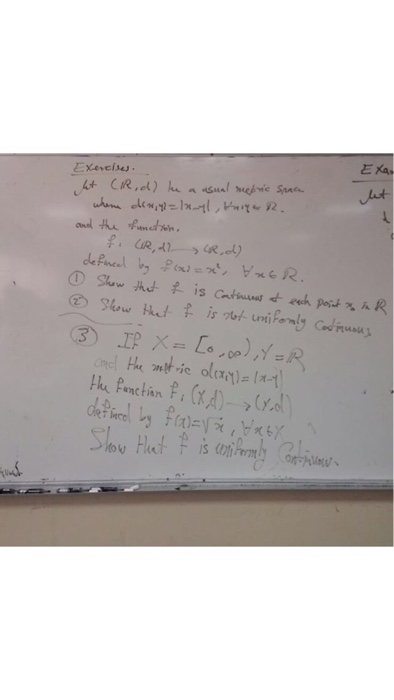 Exercises.
Let (ℝ,d) be a usual metric space
where d(x,y)=|x-y|, ∀x,y∈ℝ.
and the function.
f: (ℝ,d)→(ℝ,d)
defined by f(x)=x², ∀x∈ℝ.
① Show that f is continuous at each point x₀ in ℝ
② Show that f is not uniformly continuous
③ If X=[0,∞), Y=ℝ
and the metric d(x,y)=|x-y|
the function f: (X,d)→(Y,d)
defined by f(x)=√x, ∀x∈X
Show that f is uniformly Continuous.
Exam
Let